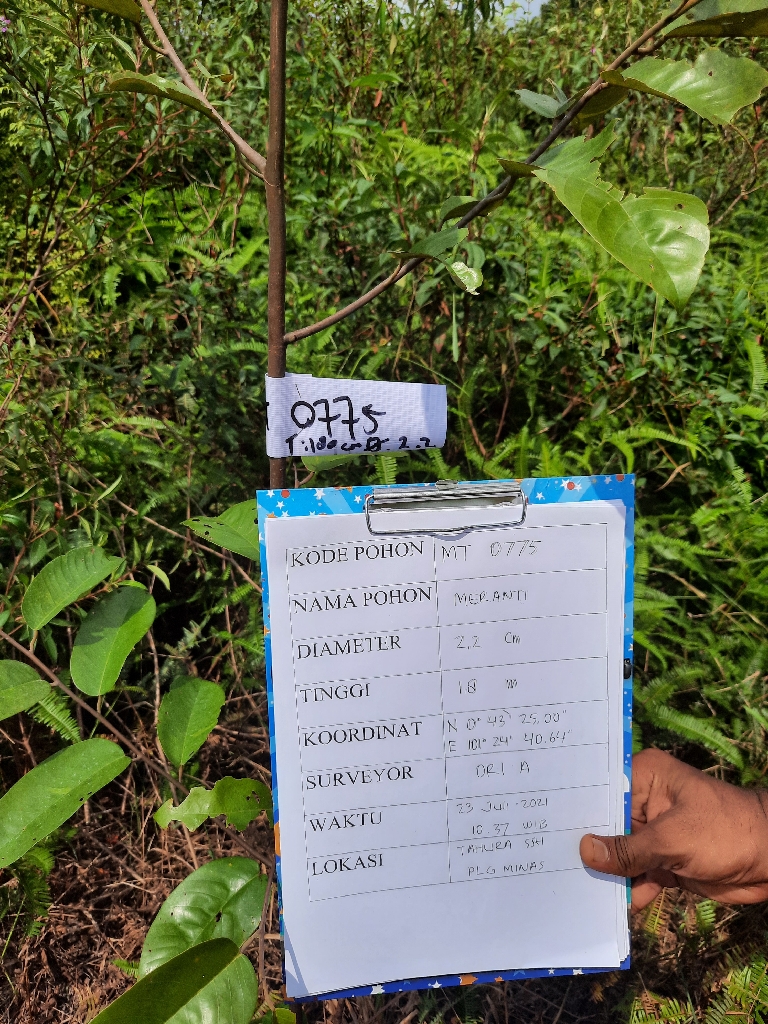 0775
T.180 cm Ø 2.2
KODE POHON MT 0775
NAMA POHON MERANTI
DIAMETER 2,2 Cm
TINGGI 18 m
KOORDINAT N 0° 43' 25.00"
E 101° 24' 40.64"
SURVEYOR ORI A
WAKTU 23 Juli 2021
10.37 WIB
LOKASI TAHURA SSH
PLG MINAS